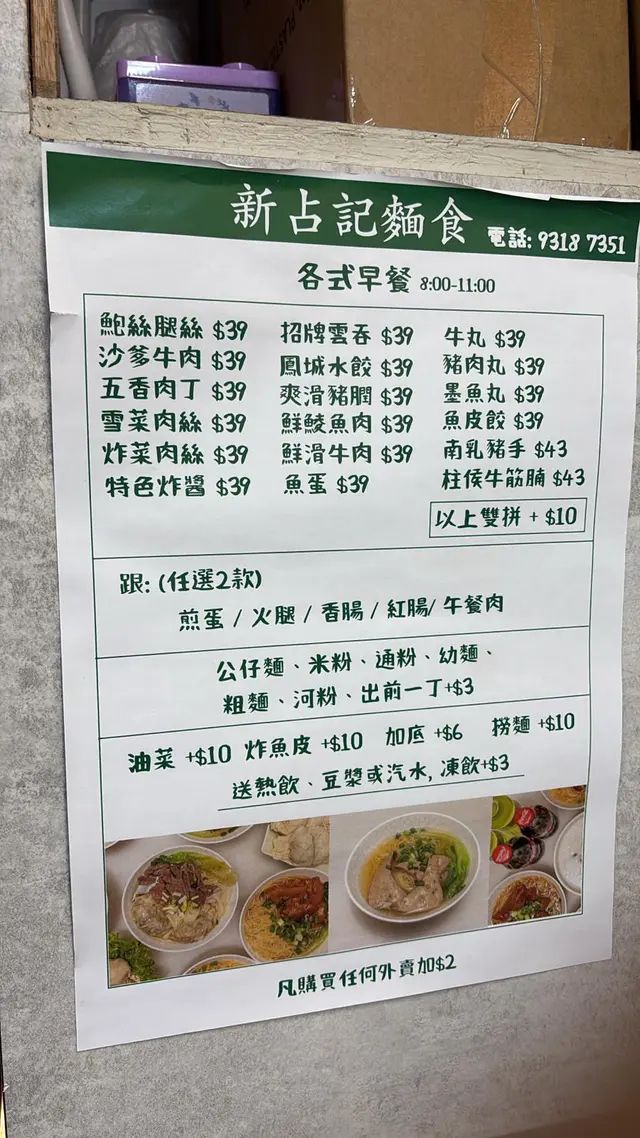 新占記麵食 電話: 9318 7351
各式早餐 8:00-11:00
鮑絲腿絲 $39 招牌雲吞 $39 牛丸 $39
沙爹牛肉 $39 鳳城水餃 $39 豬肉丸 $39
五香肉丁 $39 爽滑豬膶 $39 墨魚丸 $39
雪菜肉絲 $39 鮮鯪魚肉 $39 魚皮餃 $39
炸菜肉絲 $39 鮮滑牛肉 $39 南乳豬手 $43
特色炸醬 $39 魚蛋 $39 柱侯牛筋腩 $43
以上雙拼 + $10
跟: (任選2款)
煎蛋 / 火腿 / 香腸 / 紅腸/ 午餐肉
公仔麵、米粉、通粉、幼麵、
粗麵、河粉、出前一丁+$3
油菜 +$10 炸魚皮 +$10 加底 +$6 撈麵 +$10
送熱飲、豆漿或汽水, 凍飲+$3
凡購買任何外賣加$2